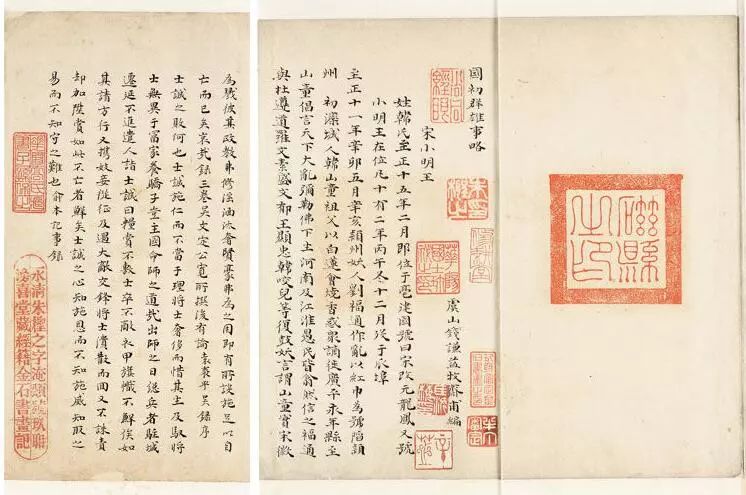 磁縣之印
國初群雄事略
宋小明王
虞山錢謙益牧齋甫編
姓韓氏至正十五年二月即位于亳建國號曰宋改元龍鳳又號
小明王在位凡十有二年丙午冬十二月殁于瓜埠
至正十一年辛卯五月辛亥潁州妖人劉福通作亂以紅巾為號陷潁
州 初灤城人韓山童祖父以白蓮會燒香惑眾謫徙廣平永年縣至
山童倡言天下大亂彌勒佛下生河南及江淮愚民皆翕然信之福通
與杜遵道羅文素盛文郁王顯忠韓咬兒等復鼓妖言謂山童實宋徽
為殘彼其政教弗修湎奢賢棄弗為之用即有所設施足以自
亡而已矣哀哉錄三卷吳文定公寬所撰後有論袁袠平吳錄序
士誠之敗何也士誠施仁而不當于理將士奢侈而惜其主及馭將
士無異于富家養驕子堂主國命師之道哉出師之日總兵者駐城
遷延不進遣人詣士誠曰糧賞不敷士卒不敵衣甲旗幟不鮮俟如
其請方行又攜妓妾從征及遇大敵交鋒將士潰散而回又不誅責
却加陞賞如此不亡者鮮矣士誠之心知施恩而不知施威知取之
易而不知守之難也俞本記事錄
永清朱檉之字淹頌號玖聃
秘喜堂藏經籍金石書畫記